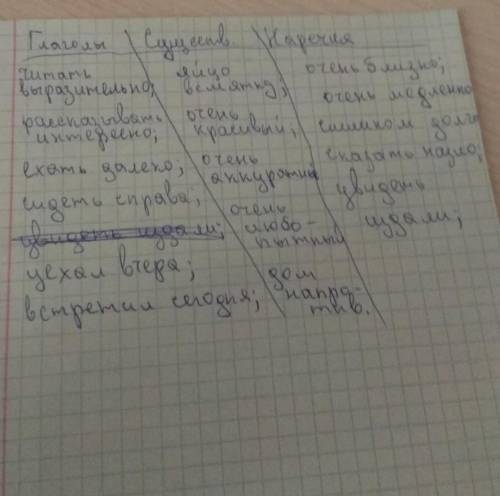 Глаголы Существ. Наречия
читать яйцо очень близко;
выразительно; всмятку; очень медленно
рассказывать очень слишком долго
интересно; красивый; сказать назло;
ехать далеко; очень увидеть
аккуратный издали;
сидеть справа; очень
увидеть издали; любо-
пытный
уехал вчера; дом
встретил сегодня; напро-
тив.